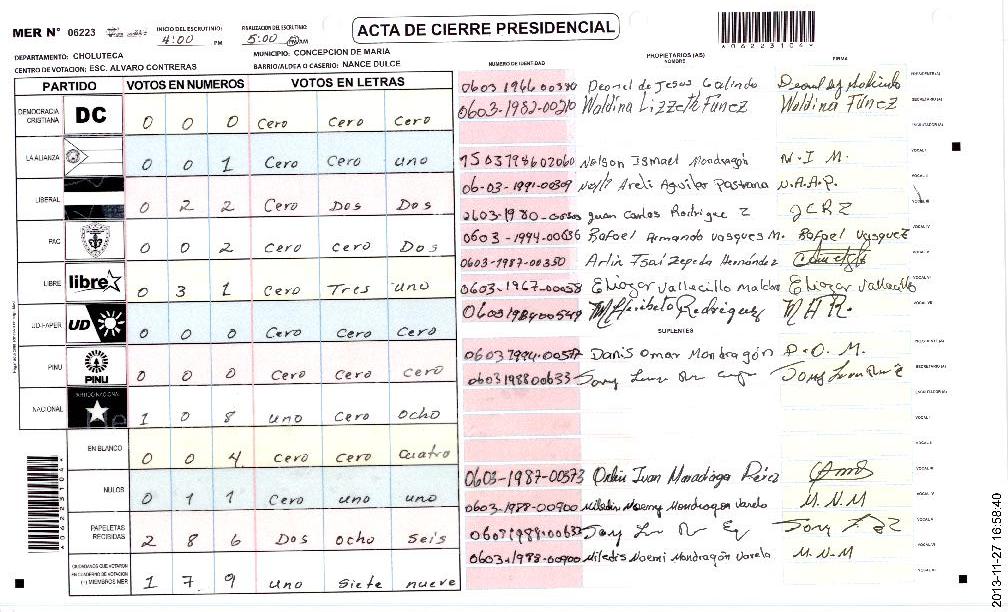 MER N° 06223
INICIO DEL ESCRUTINIO: 4:00 PM
FINALIZACION DEL ESCRUTINIO: 5:00
ACTA DE CIERRE PRESIDENCIAL
06223104
DEPARTAMENTO: CHOLUTECA
MUNICIPIO: CONCEPCION DE MARIA
CENTRO DE VOTACION: ESC. ALVARO CONTRERAS
BARRIO/ALDEA O CASERIO: NANCE DULCE
PARTIDO VOTOS EN NUMEROS VOTOS EN LETRAS
DEMOCRACIA CRISTIANA DC 0 0 0 Cero Cero Cero
LA ALIANZA 0 0 1 Cero Cero uno
LIBERAL 0 2 2 Cero Dos Dos
PAC 0 0 2 Cero cero Dos
LIBRE libre 0 3 1 Cero Tres uno
UD-FAPER UD 0 0 0 Cero Cero Cero
PINU PINU 0 0 0 Cero Cero cero
NACIONAL 1 0 8 uno Cero ocho
EN BLANCO 0 0 4 Cero Cero Cuatro
NULOS 0 1 1 Cero uno uno
PAPELETAS RECIBIDAS 2 8 6 Dos ocho Seis
CIUDADANOS QUE VOTARON EN CUADERNO DE VOTACION (+) MIEMBROS MER 1 7 9 uno Siete nueve
06223104
NUMERO DE IDENTIDAD PROPIETARIOS (AS) NOMBRE FIRMA
Deonel de Jesus Galindo
0603-1982-00210 Waldina Lizzeth Funez Waldina Funez
Nelson Ismael Mondragón N.I M.
06-03-1991-00309 Areli Aguilar Pastrana N.A.A.P.
Juan Carlos Rodrigue z JCRZ
0603-1994-00636 Rafael Armando Vasques M. Rafael Vasquez
0603-1987-00350 Arlin Isaí Zepeda Hernández
0603-1967-00058 Eliazar Vallecillo Eliazar Vallecillo
Heriberto Rodriguez M H R.
SUPLENTES
Danis Omar Mondragón D.O. M.
0603198800633
0603-1987-00573 Ivan Perez
0603-1988-00900 Miledis Noemy Mondragon Varela M.N.M
0603-1988-00900 Miledis Noemi Mondragón Varela M.N.M
2013-11-27 16:58:40